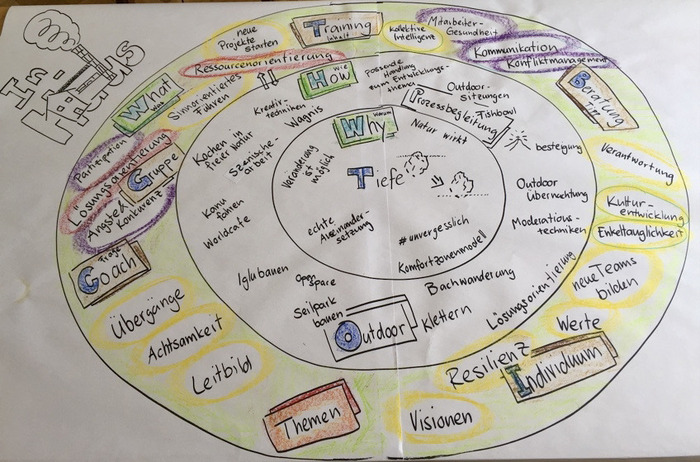 In-
Haus
What
Was
How
WIE
Why
Warum
Training
Inhalt
neue
Projekte
starten
kollektive
Intelligenz
Mitarbeiter-
Gesundheit
Kommunikation
Konfliktmanagement
Beratung
Tiefe
Ressourcenorientierung
Sinnorientiertes
Führen
Partizipation
Lösungsorientierung
Gruppe
Angst &
Konkurenz
Coach
Übergänge
Achtsamkeit
Leitbild
Themen
Visionen
Resilienz
Individuum
Werte
neue Teams
bilden
Enkeltauglichkeit
Kultur-
entwicklung
Verantwortung
passende
Handlung
zum Entwicklungs-
thema
Outdoor-
Sitzungen
Fishbowl
Prozessbegleitung
besteigung
Outdoor
Übernachtung
Moderations-
techniken
Lösungsorientierung
Bachwanderung
Klettern
Outdoor
Seilpark
bauen
Open
space
Iglu bauen
Worldcafe
Kanu
fahren
Szenische-
arbeit
Kochen in
freier Natur
Kreativ-
techniken
Wagnis
Natur wirkt
Veränderung
ist
möglich
echte
Auseinander-
setzung
#unvergesslich
Komfortzonenmodell